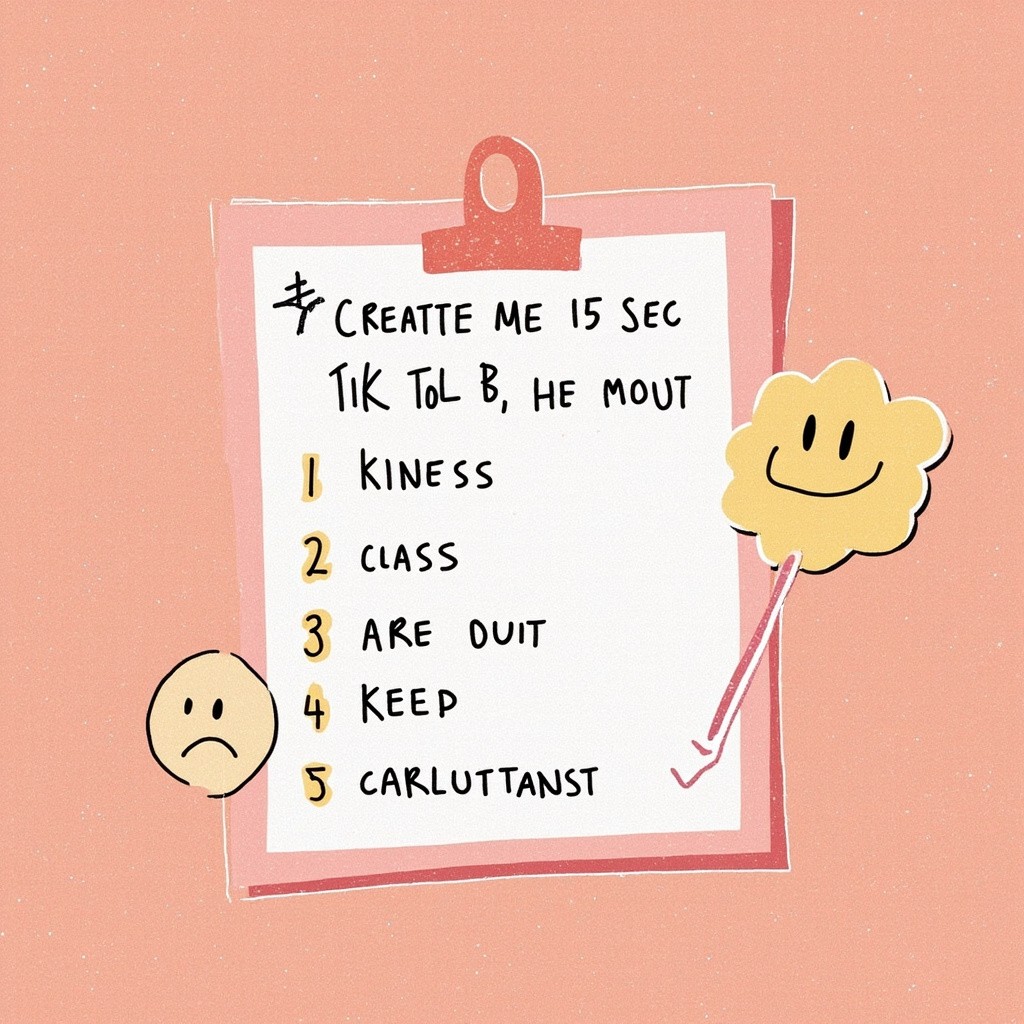 CREATTE ME 15 SEC
TIK TOL B, HE MOUT
1 KINESS
2 CLASS
3 ARE DUIT
4 KEEP
5 CARLUTTANST